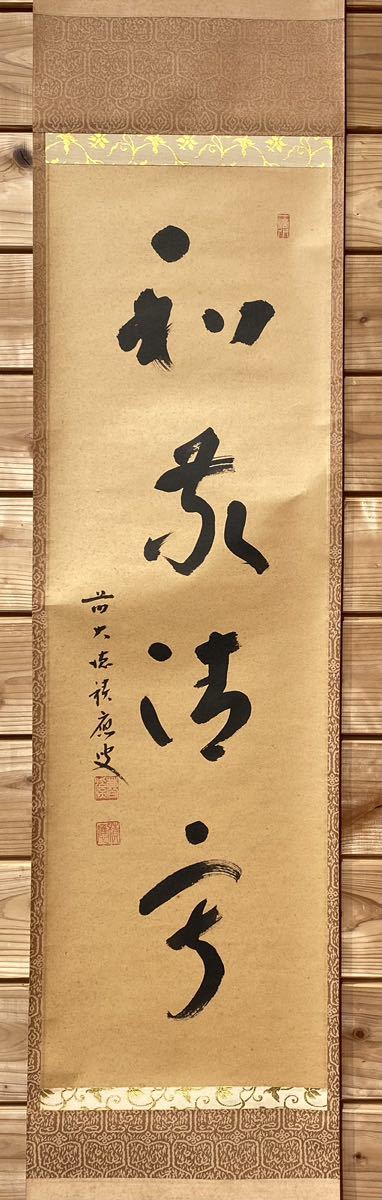 和敬清寂
前大徳積應叟